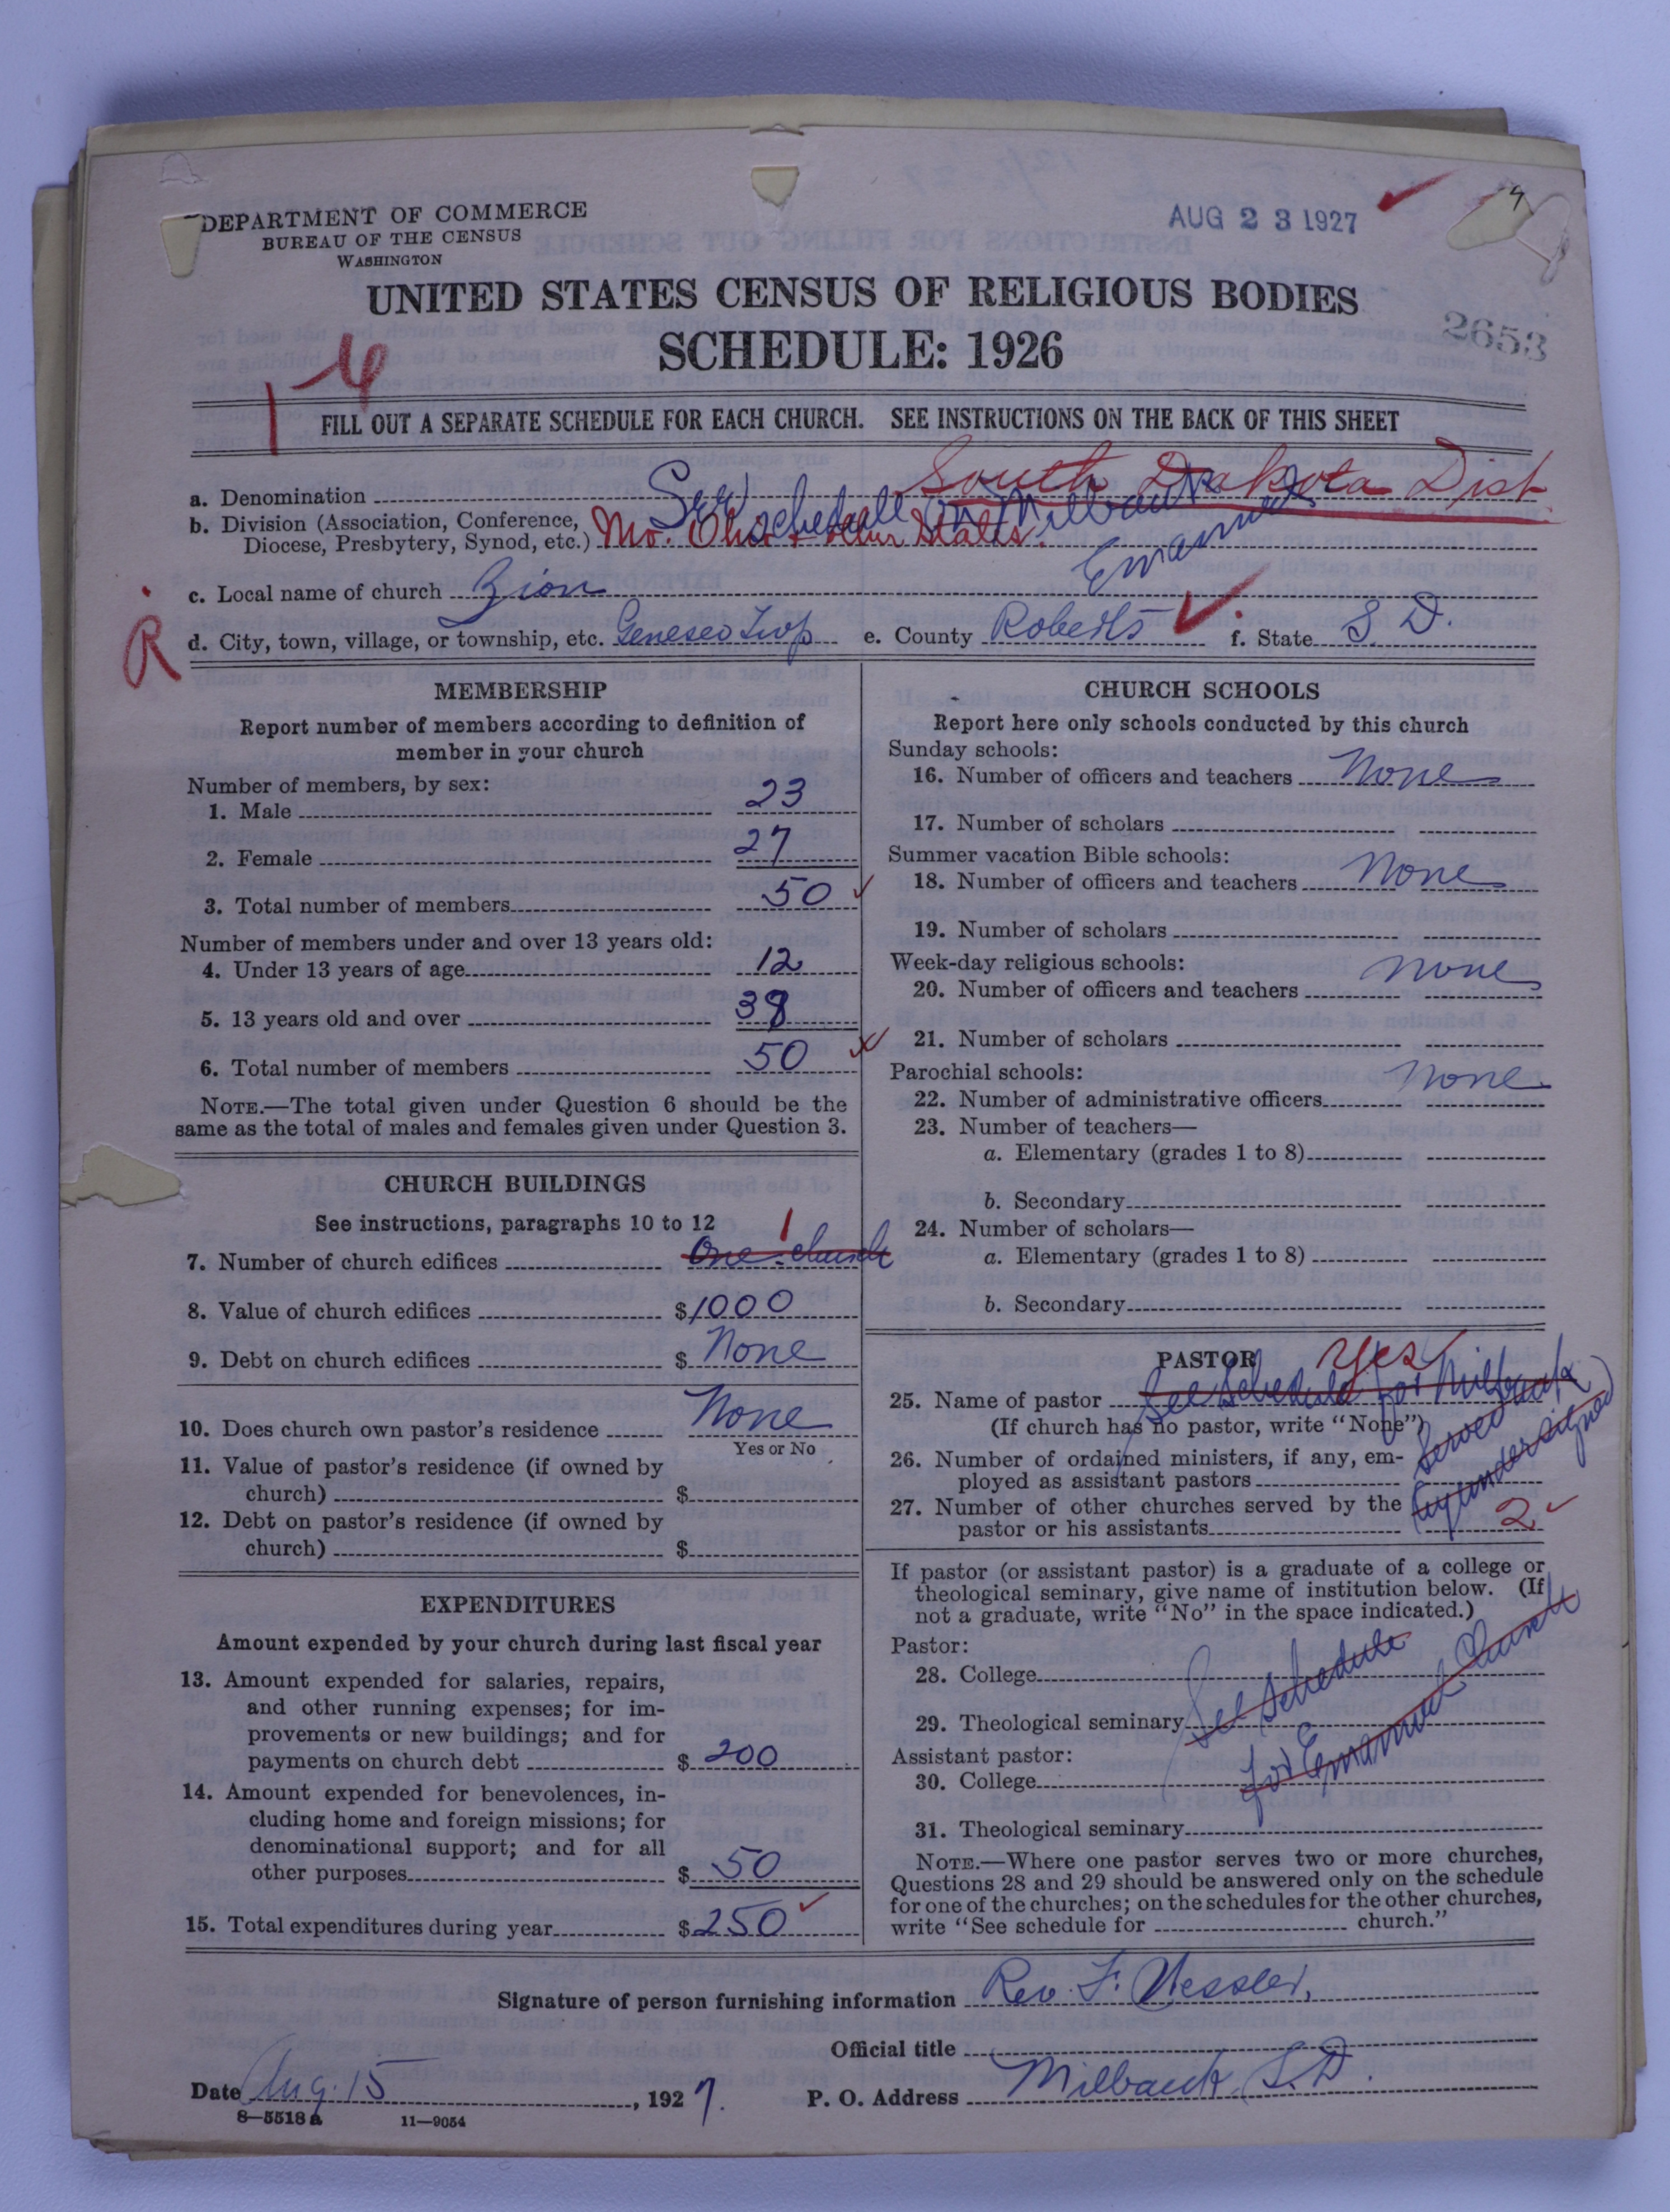 DEPARTMENT OF COMMERCE
BUREAU OF THE CENSUS
WASHINGTON
AUG 23 1927
UNITED STATES CENSUS OF RELIGIOUS BODIES
SCHEDULE: 1926
2653
FILL OUT A SEPARATE SCHEDULE FOR EACH CHURCH. SEE INSTRUCTIONS ON THE BACK OF THIS SHEET
a. Denomination South Dakota Dist
See schedule on Milbank
Emanuel
b. Division (Association, Conference,
Diocese, Presbytery, Synod, etc.) Mo. Ohio & other States.
c. Local name of church Zion
R
d. City, town, village, or township, etc. Geneseo Twp e. County Roberts f. State S. D.
MEMBERSHIP
Report number of members according to definition of
member in your church
Number of members, by sex:
1. Male 23
2. Female 27
3. Total number of members 50
Number of members under and over 13 years old:
4. Under 13 years of age 12
5. 13 years old and over 38
6. Total number of members 50
NOTE.—The total given under Question 6 should be the
same as the total of males and females given under Question 3.
CHURCH BUILDINGS
See instructions, paragraphs 10 to 12
7. Number of church edifices One church 1
8. Value of church edifices $1000
9. Debt on church edifices $ None
10. Does church own pastor's residence None
Yes or No
11. Value of pastor's residence (if owned by
church) $
12. Debt on pastor's residence (if owned by
church) $
EXPENDITURES
Amount expended by your church during last fiscal year
13. Amount expended for salaries, repairs,
and other running expenses; for im-
provements or new buildings; and for
payments on church debt $ 200
14. Amount expended for benevolences, in-
cluding home and foreign missions; for
denominational support; and for all
other purposes $ 50
15. Total expenditures during year $ 250
CHURCH SCHOOLS
Report here only schools conducted by this church
Sunday schools:
16. Number of officers and teachers None
17. Number of scholars
Summer vacation Bible schools:
18. Number of officers and teachers None
19. Number of scholars
Week-day religious schools:
20. Number of officers and teachers None
21. Number of scholars
Parochial schools: None
22. Number of administrative officers
23. Number of teachers—
a. Elementary (grades 1 to 8)
b. Secondary
24. Number of scholars—
a. Elementary (grades 1 to 8)
b. Secondary
PASTOR Yes
25. Name of pastor See Schedule for Milbank
(If church has no pastor, write "None") Served
by undersigned
26. Number of ordained ministers, if any, em-
ployed as assistant pastors
27. Number of other churches served by the
pastor or his assistants 2
If pastor (or assistant pastor) is a graduate of a college or
theological seminary, give name of institution below. (If
not a graduate, write "No" in the space indicated.)
Pastor:
28. College
29. Theological seminary See Schedule
for Emanuel Church
Assistant pastor:
30. College
31. Theological seminary
NOTE.—Where one pastor serves two or more churches,
Questions 28 and 29 should be answered only on the schedule
for one of the churches; on the schedules for the other churches,
write "See schedule for church."
Signature of person furnishing information Rev. F. Wessler,
Official title
Date Aug. 15, 1927. P. O. Address Milbank, S.D.
8—5518 a 11—9054